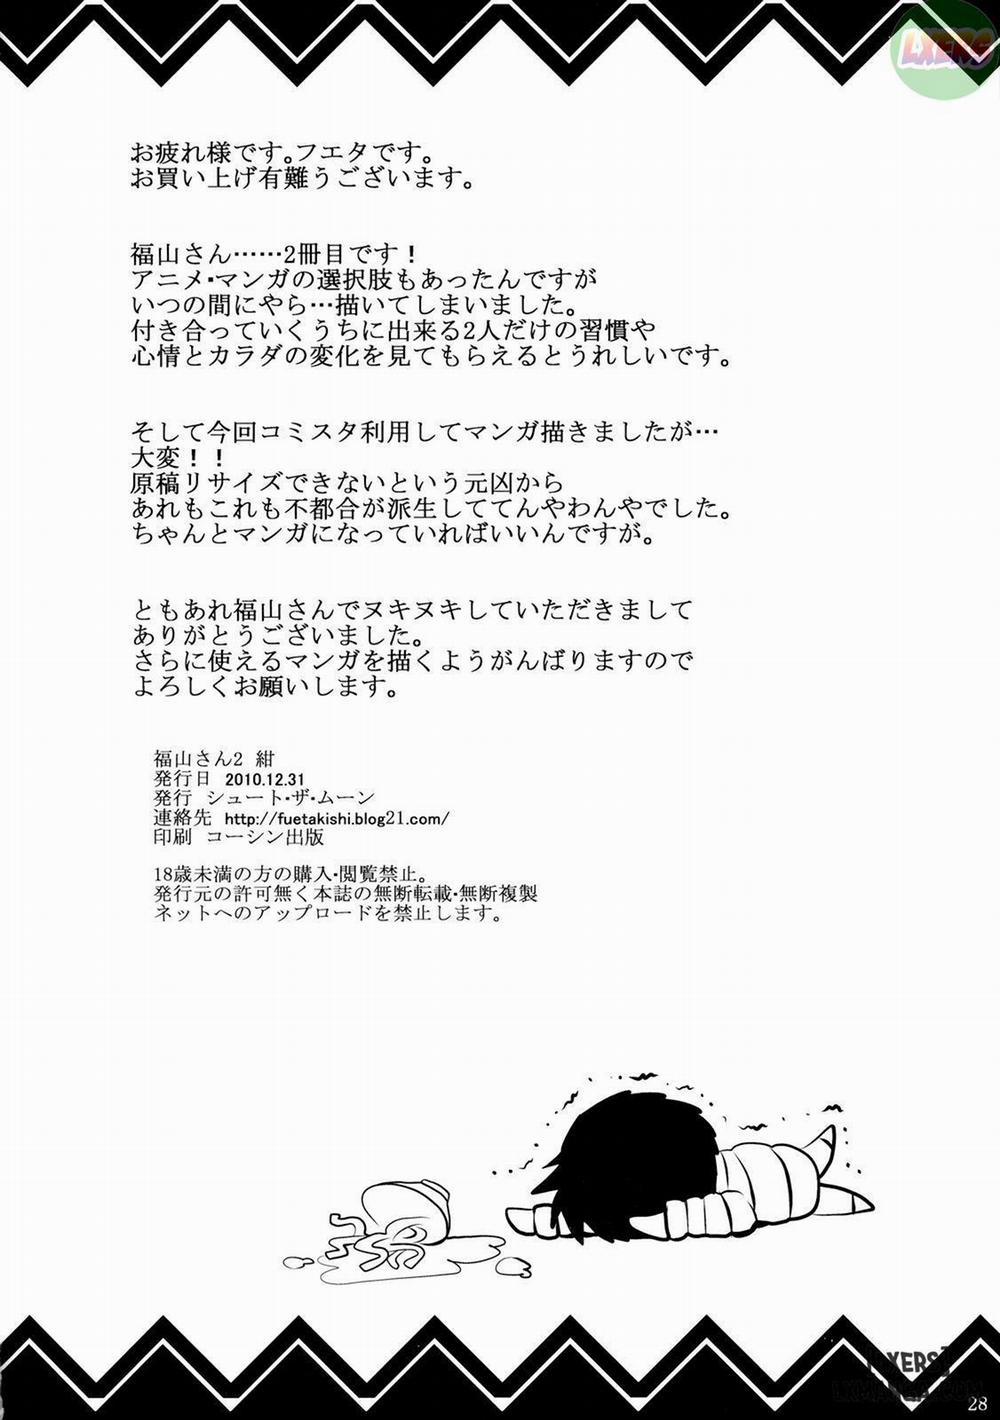 LXERS
お疲れ様です。フエタです。
お買い上げ有難うございます。
福山さん……2冊目です！
アニメ・マンガの選択肢もあったんですが
いつの間にやら…描いてしまいました。
付き合っていくうちに出来る2人だけの習慣や
心情とカラダの変化を見てもらえるとうれしいです。
そして今回コミスタ利用してマンガ描きましたが…
大変！！
原稿リサイズできないという元凶から
あれもこれも不都合が派生しててんやわんやでした。
ちゃんとマンガになっていればいいんですが。
ともあれ福山さんでヌキヌキしていただきまして
ありがとうございました。
さらに使えるマンガを描くようがんばりますので
よろしくお願いします。
福山さん2 紺
発行日 2010.12.31
発行 シュート・ザ・ムーン
連絡先 http://fuetakishi.blog21.com/
印刷 コーシン出版
18歳未満の方の購入・閲覧禁止。
発行元の許可無く本誌の無断転載・無断複製
ネットへのアップロードを禁止します。
28